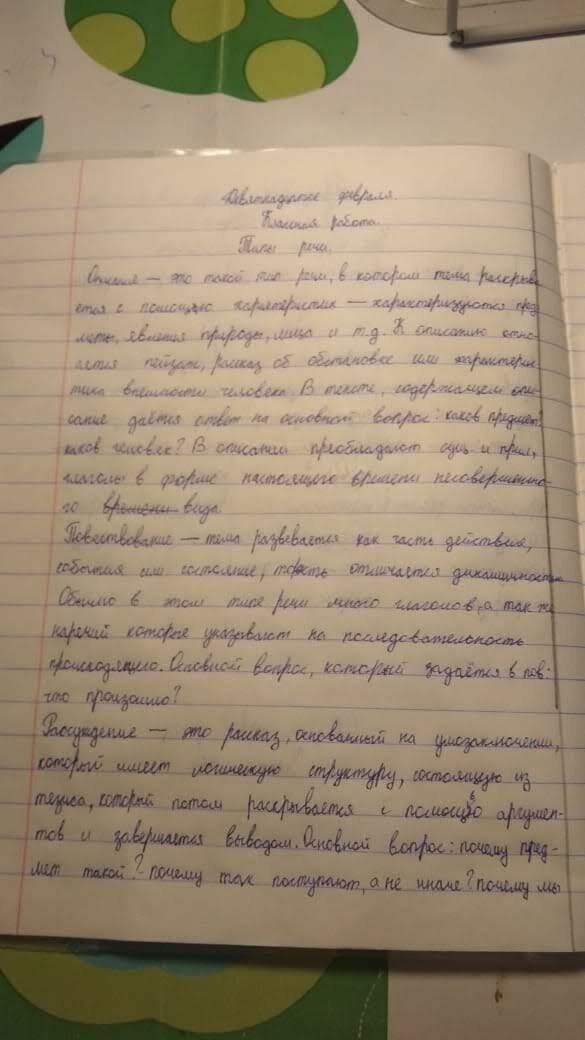 Девятнадцатое февраля.
Классная работа.
Типы речи.
Описание — это такой тип речи, в котором тема раскрыва-
ется с помощью характеристик — характеризуются пред-
меты, явления природы, лица и т.д. К описанию отно-
сится пейзаж, рассказ об обстановке или характерис-
тика внешности человека. В тексте, содержащем опи-
сание даётся ответ на основной вопрос: каков предмет?
каков человек? В описании преобладают сущ. и прил.,
глаголы в форме настоящего времени несовершенно-
го времени вида.
Повествование — тема развевается как часть действия,
события или состояние, тоесть отличается динамичностью
Обычно в этом типе речи много глаголов, а так же
наречий которые указывают на последовательность
происходящего. Основной вопрос, который задаётся в пов:
что произошло?
Рассуждение — это рассказ, основанный на умозаключении,
который имеет логическую структуру, состоящую из
тезиса, который потом раскрывается с помощью аргумен-
тов и завершается выводом. Основной вопрос: почему пред-
мет такой? почему так поступают, а не иначе? почему мы